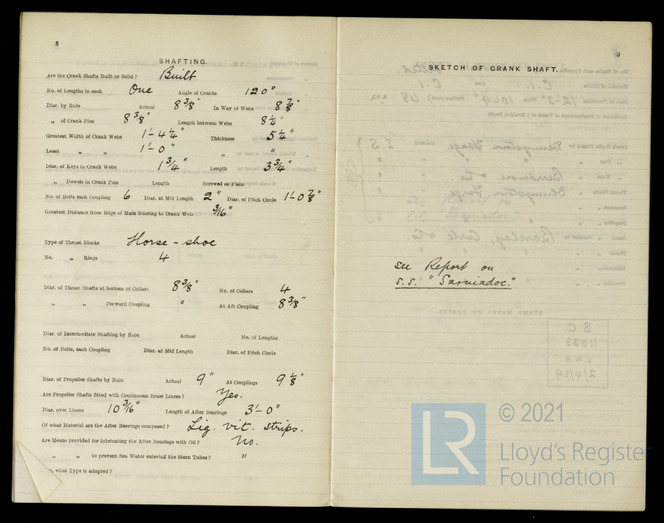 8
SHAFTING.
Are the Crank Shafts Built or Solid? Built
No. of Lengths in each One Angle of Cranks 120°
Diar. by Rule Actual 8 3/8" In Way of Webs 8 7/8"
„ of Crank Pins 8 3/8" Length between Webs 8 1/4"
Greatest Width of Crank Webs 1'-4 1/4" Thickness 5 1/4"
Least „ „ 1'-0" „ "
Diar. of Keys in Crank Webs 1 3/4" Length 3 3/4"
„ Dowels in Crank Pins Length Screwed or Plain
No. of Bolts each Coupling 6 Diar. at Mid Length 2" Diar. of Pitch Circle 1'-0 7/8"
Greatest Distance from Edge of Main Bearing to Crank Web 3/16"
Type of Thrust Blocks Horse-shoe
No. „ Rings 4
Diar. of Thrust Shafts at bottom of Collars 8 3/8" No. of Collars 4
„ „ Forward Coupling " At Aft Coupling 8 3/8"
Diar. of Intermediate Shafting by Rule Actual No. of Lengths
No. of Bolts, each Coupling Diar. at Mid Length Diar. of Pitch Circle
Diar. of Propeller Shafts by Rule Actual 9" At Couplings 9 1/8"
Are Propeller Shafts fitted with Continuous Brass Liners? Yes.
Diar. over Liners 10 3/16" Length of After Bearings 3'-0"
Of what Material are the After Bearings composed? Lig. vit. strips.
Are Means provided for lubricating the After Bearings with Oil? No.
„ „ to prevent Sea Water entering the Stern Tubes? "
what Type is adopted?
9
SKETCH OF CRANK SHAFT.
see Report on
S.S. "Sarmadoc."
© 2021
LR Lloyd's Register
Foundation